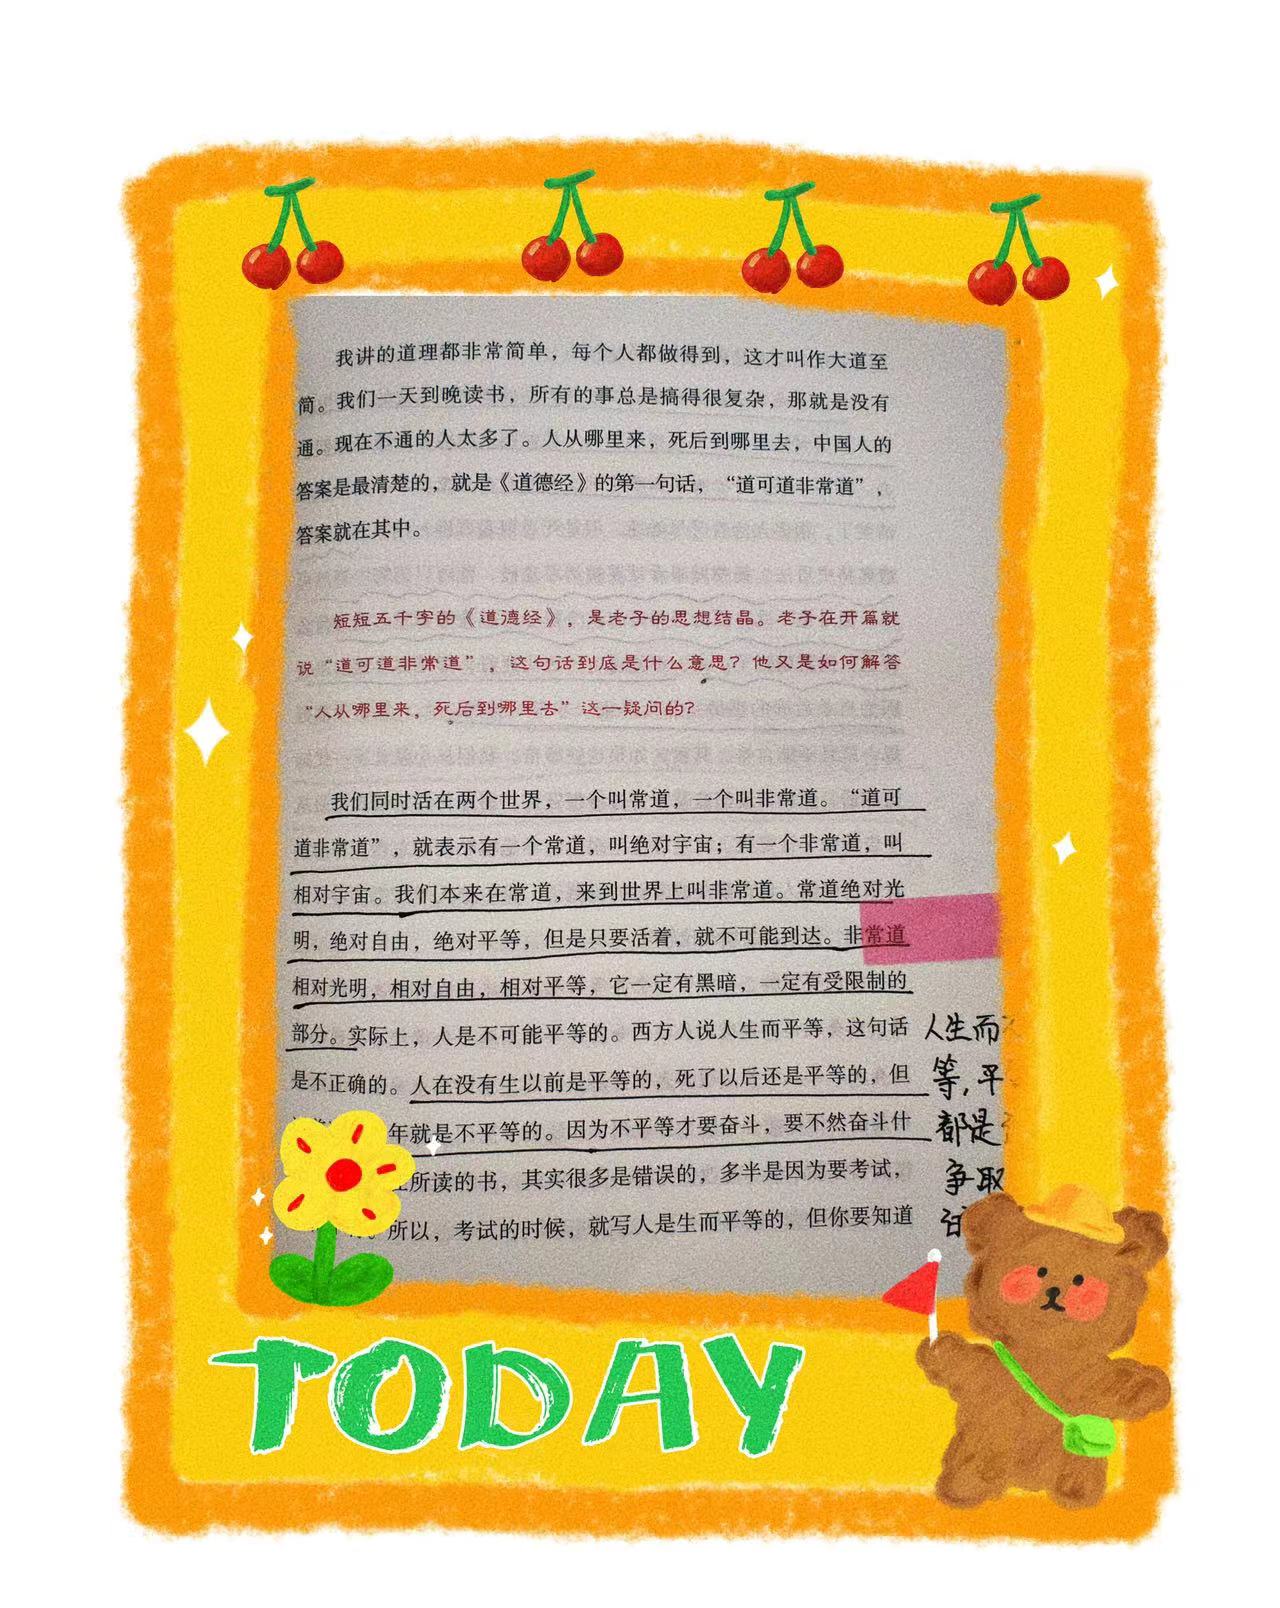 我讲的道理都非常简单，每个人都做得到，这才叫作大道至
简。我们一天到晚读书，所有的事总是搞得很复杂，那就是没有
通。现在不通的人太多了。人从哪里来，死后到哪里去，中国人的
答案是最清楚的，就是《道德经》的第一句话，“道可道非常道”，
答案就在其中。
短短五千字的《道德经》，是老子的思想结晶。老子在开篇就
说“道可道非常道”，这句话到底是什么意思？他又是如何解答
“人从哪里来，死后到哪里去”这一疑问的？
我们同时活在两个世界，一个叫常道，一个叫非常道。“道可
道非常道”，就表示有一个常道，叫绝对宇宙；有一个非常道，叫
相对宇宙。我们本来在常道，来到世界上叫非常道。常道绝对光
明，绝对自由，绝对平等，但是只要活着，就不可能到达。非常道
相对光明，相对自由，相对平等，它一定有黑暗，一定有受限制的
部分。实际上，人是不可能平等的。西方人说人生而平等，这句话
是不正确的。人在没有生以前是平等的，死了以后还是平等的，但
年就是不平等的。因为不平等才要奋斗，要不然奋斗什
所读的书，其实很多是错误的，多半是因为要考试，
所以，考试的时候，就写人是生而平等的，但你要知道
人生而
等，平
都是
争取
TODAY